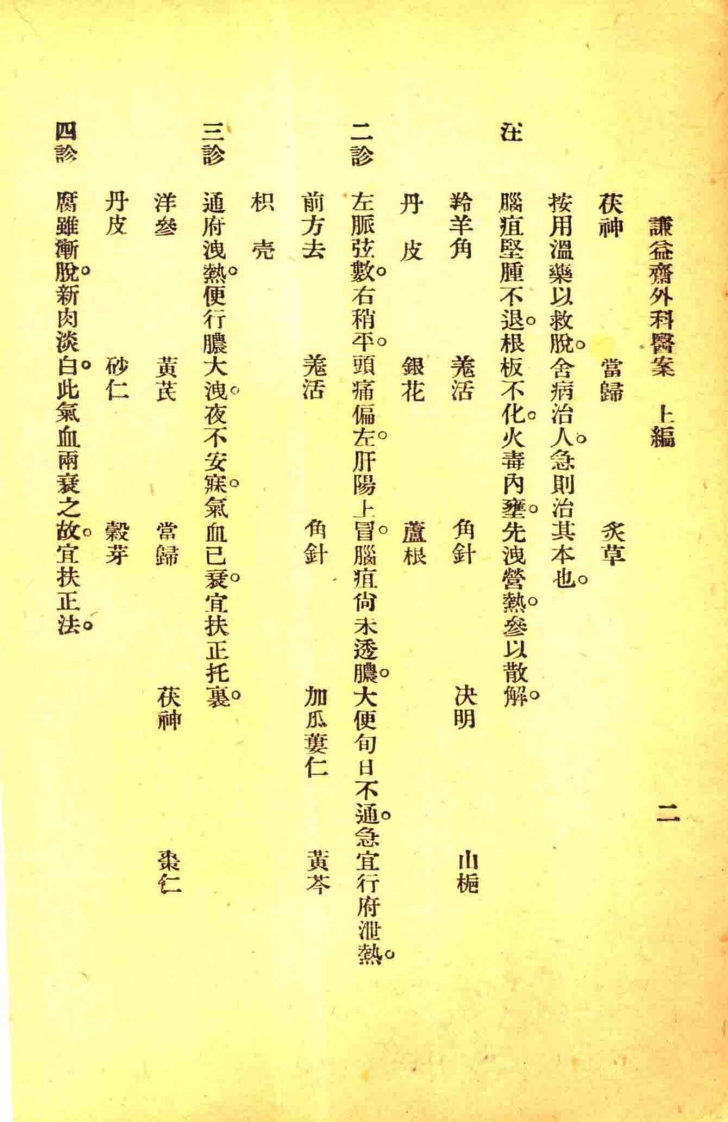 謙益齋外科醫案　上編　二
茯神　當歸　炙草
按用溫藥以救脫。舍病治人。急則治其本也。
汪　腦疽堅腫不退。根板不化。火毒內壅。先洩營熱。參以散解。
羚羊角　羗活　角針　決明　山梔
丹皮　銀花　蘆根
二診　左脈弦數。右稍平。頭痛偏左。肝陽上冒。腦疽尙未透膿。大便旬日不通。急宜行府泄熱。
前方去　羗活　角針　加瓜蔞仁　黃芩
枳壳
三診　通府洩熱。便行膿大洩。夜不安寐。氣血已衰。宜扶正托裏。
洋參　黃芪　當歸　茯神　棗仁
丹皮　砂仁　穀芽
四診　腐雖漸脫。新肉淡白。此氣血兩衰之故。宜扶正法。